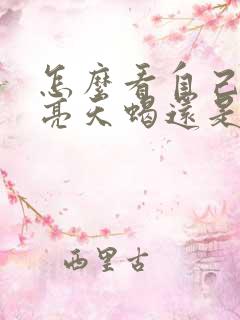 怎麼看自己
亮天蝎還是
西里古